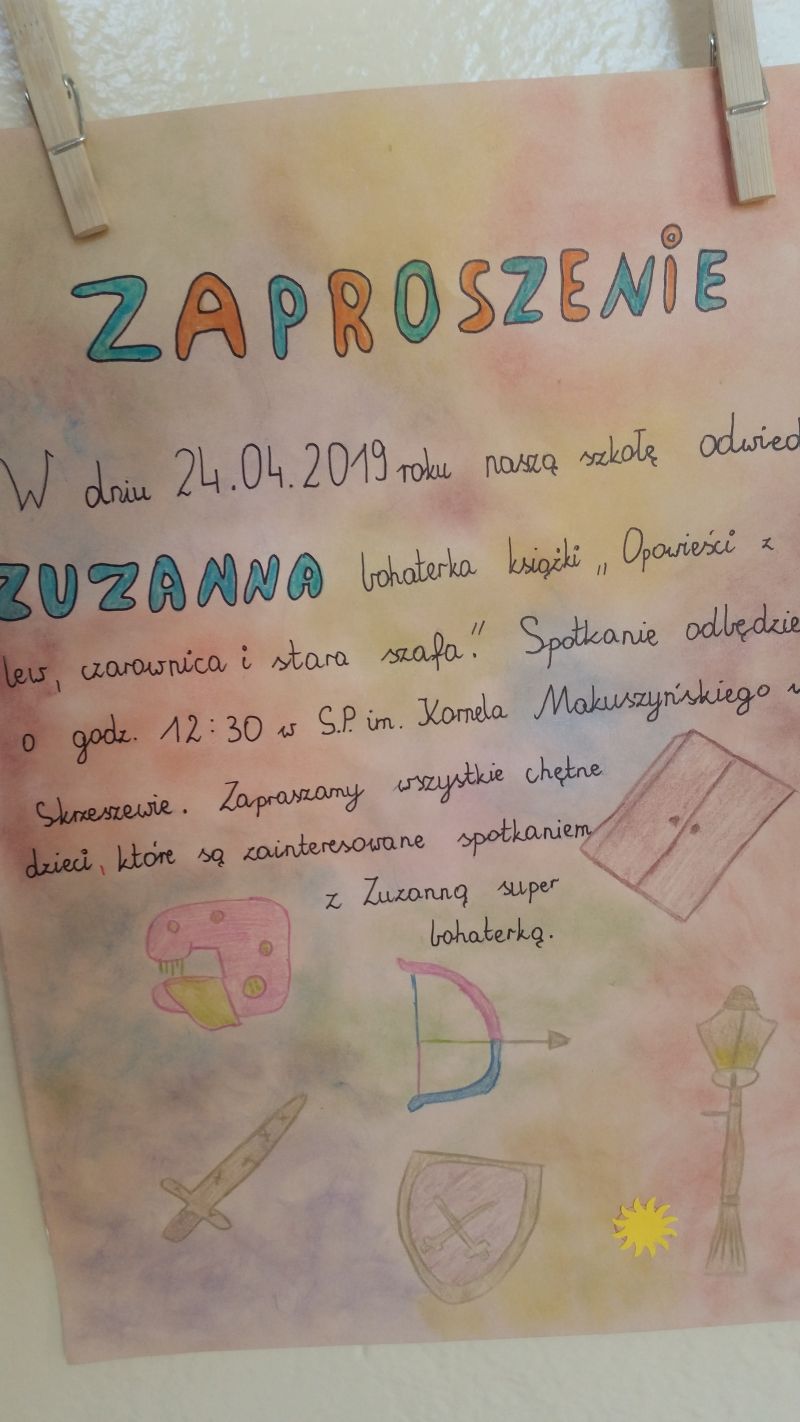 ZAPROSZENIE
W dniu 24.04.2019 roku naszą szkołę odwied
ZUZANNA bohaterka książki „Opowieści z
lew, czarownica i stara szafa." Spotkanie odbędzie
o godz. 12:30 w S.P. im. Kornela Makuszyńskiego w
Skrzeszewie. Zapraszamy wszystkie chętne
dzieci, które są zainteresowane spotkaniem
z Zuzanną super
bohaterką.